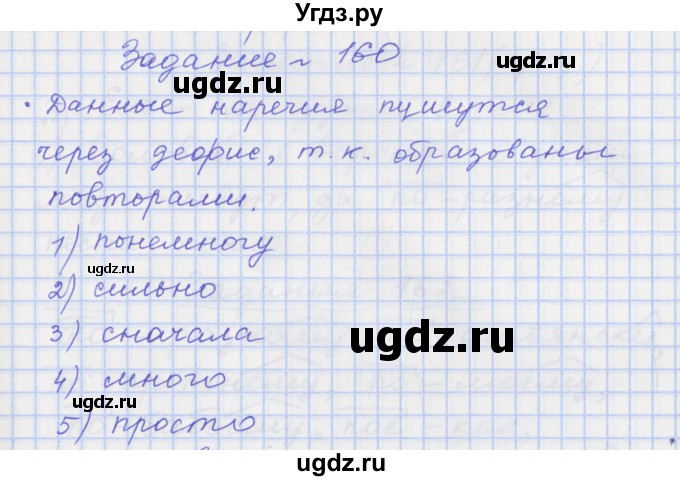 Угдз.ру
Задание № 160
ugdz.ru
• Данные наречия пишутся
через дефис, т.к. образованы
повторами.
1) понемногу
ugdz.ru
2) сильно
3) сначала
ugdz.ru
4) много
ugdz.ru
5) просто
ugdz.ru